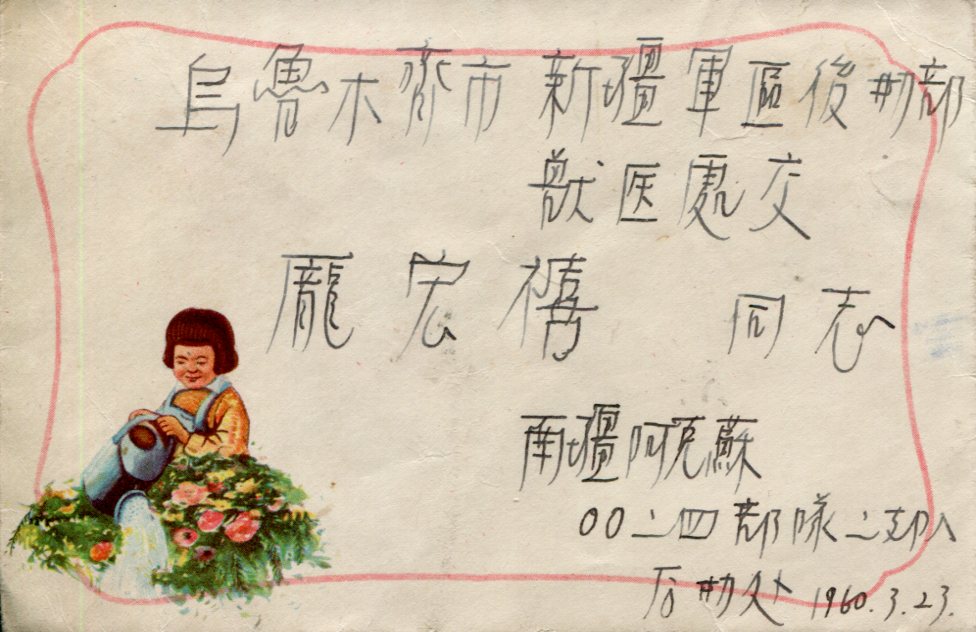 乌魯木齐市新疆軍區後勤部
獸医處交
龎宏禧 同志
南疆阿克蘇
00二四部隊二支队
后勤处 1960.3.23.